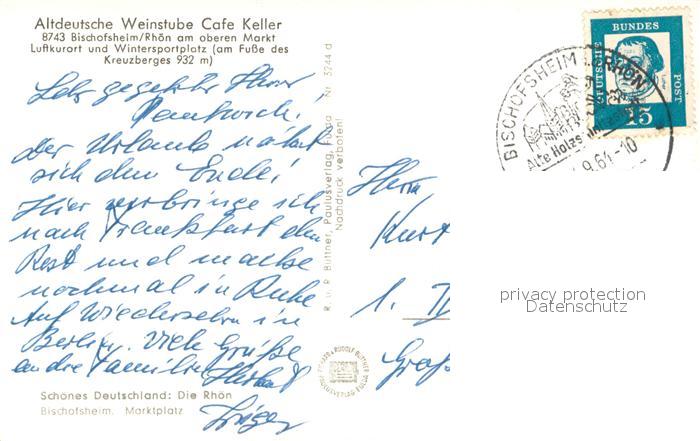 Altdeutsche Weinstube Cafe Keller
8743 Bischofsheim/Rhön am oberen Markt
Luftkurort und Wintersportplatz (am Fuße des
Kreuzberges 932 m)
Sehr geehrter Herr
Der Urlaub naht
sich dem Ende!
Hier verbringe ich
nach Frankfurt den
Rest und mache
nochmal in Ruhe
Auf Wiedersehn in
Berlin. Viele Grüße
an die Familie
Schönes Deutschland: Die Rhön
Bischofsheim. Marktplatz
R. u. P. Büttner, Paulusverlag, Fulda Nr. 3244 d
Nachdruck verboten!
Herrn
Kurt
1.
BUNDES
POST
DEUTSCHE
15
BISCHOFSHEIM RHÖN
Alte Holzs
9.64-10
privacy protection
Datenschutz